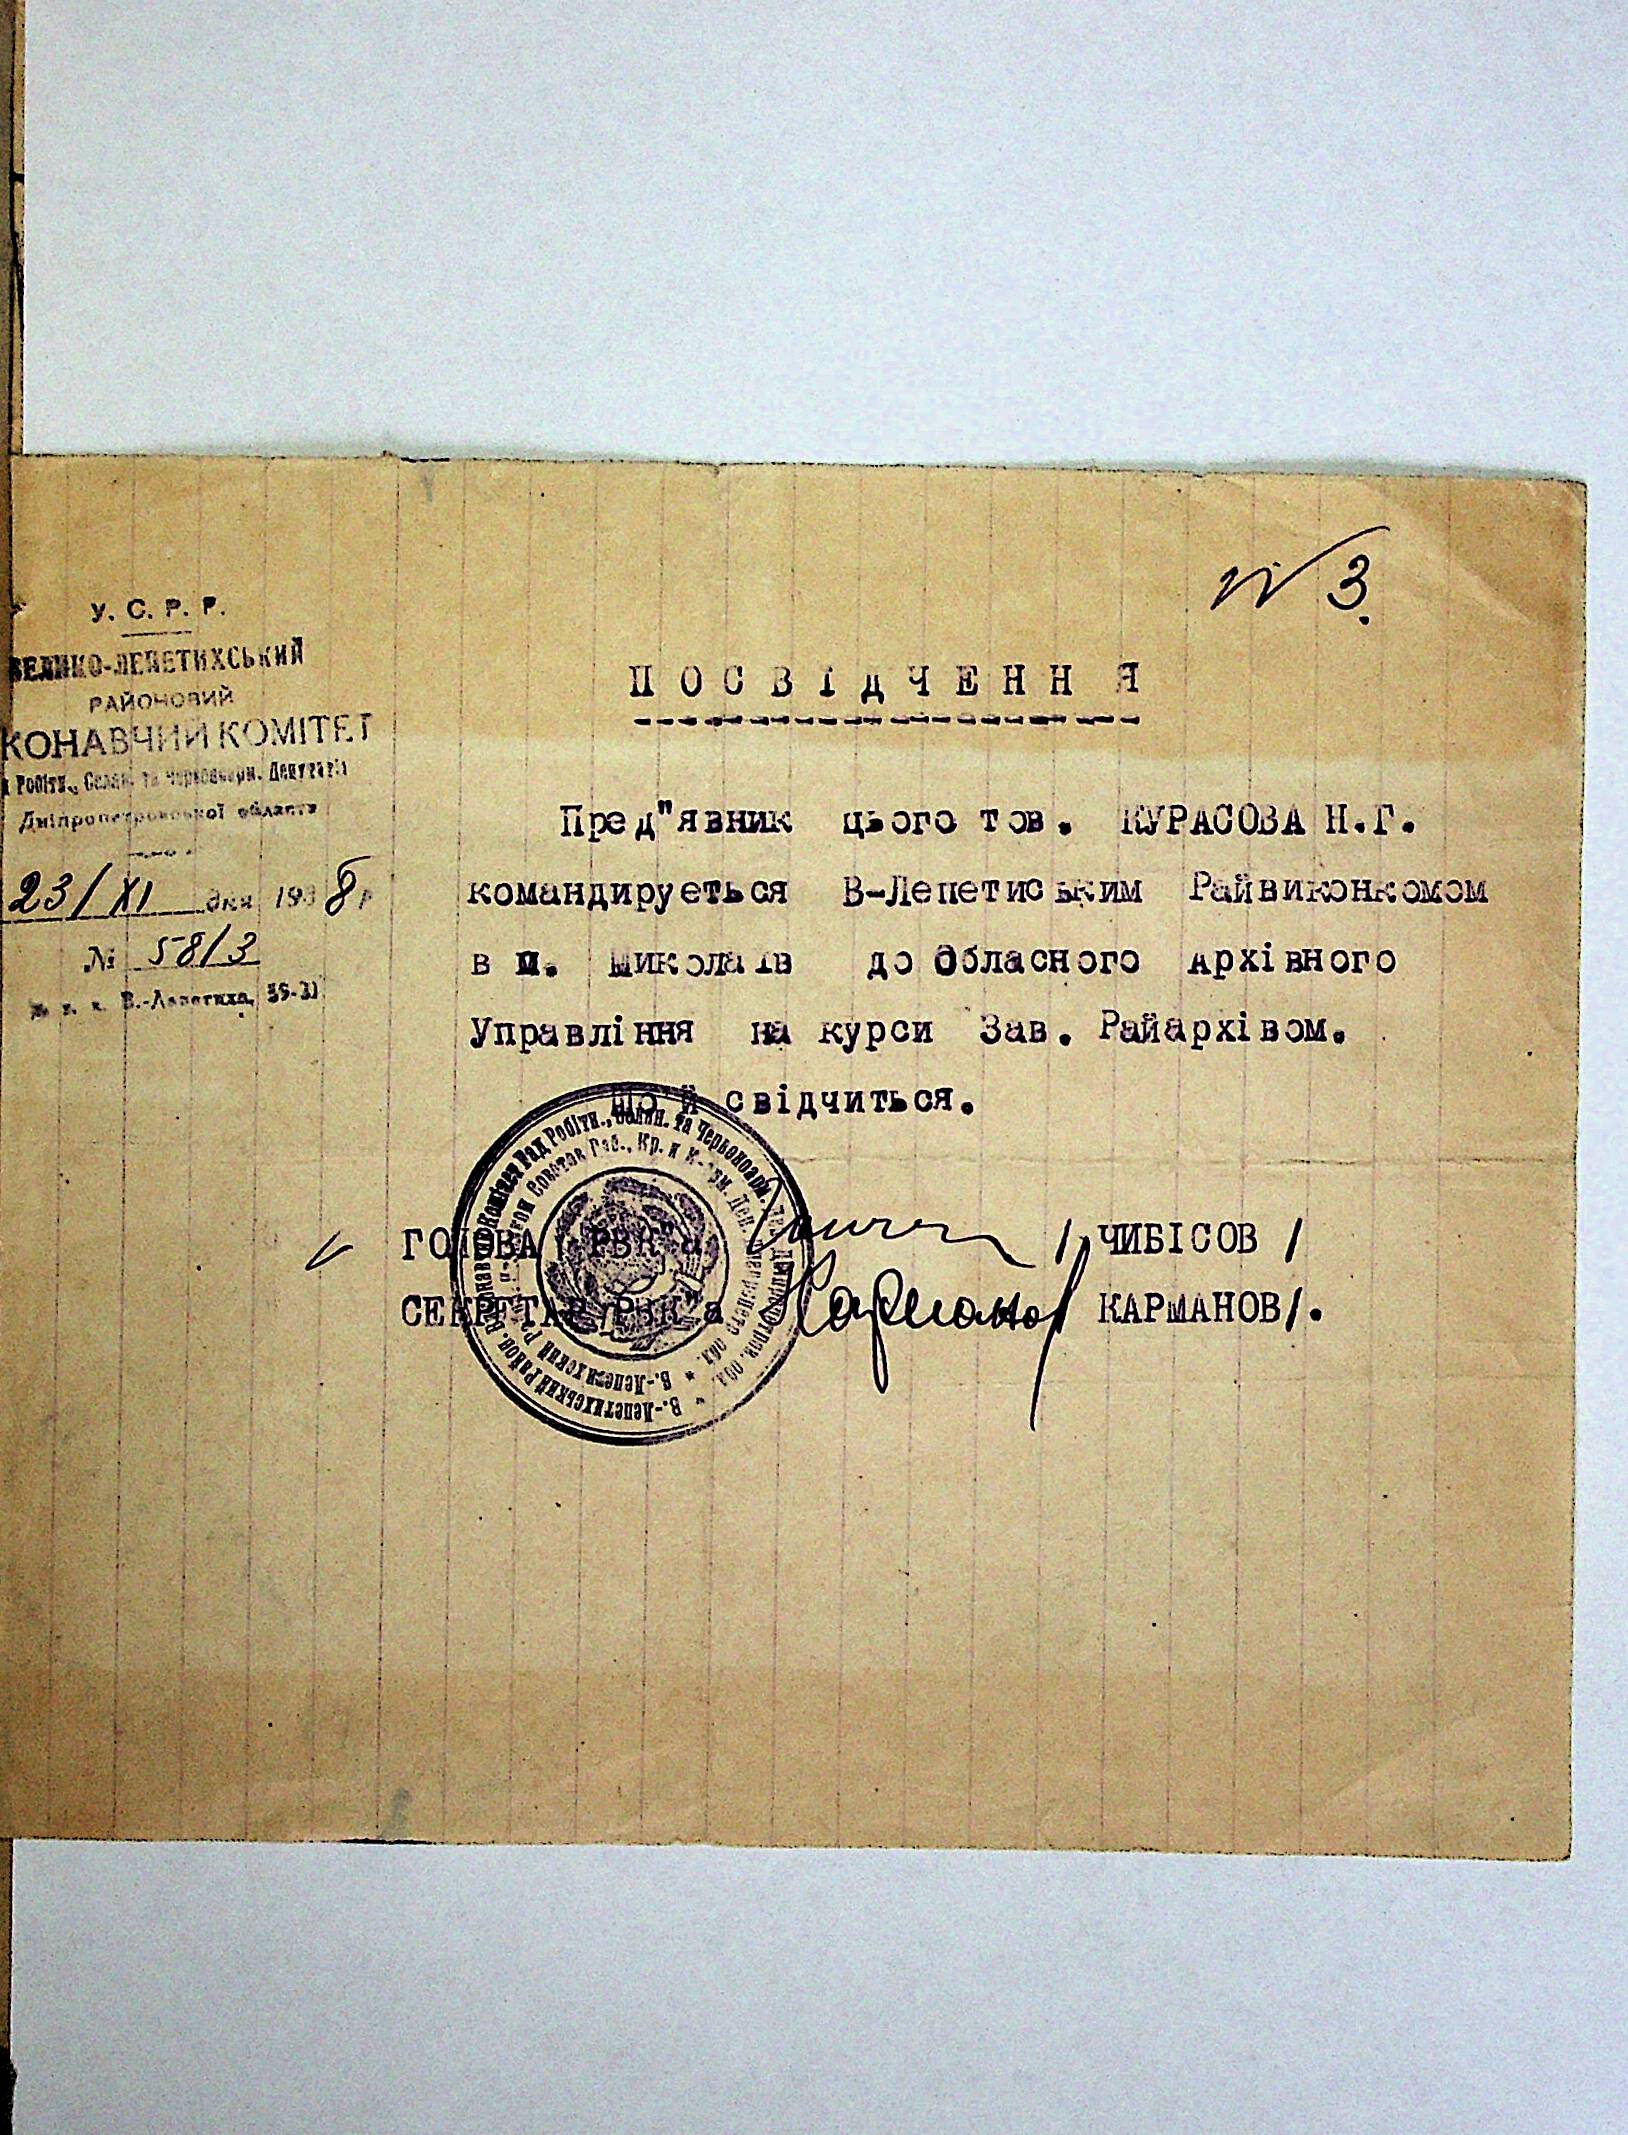 № 3.
У. С. Р. Р.
ВЕЛИКО-ЛЕПЕТИХСЬКИЙ
РАЙОНОВИЙ
КОНАВЧИЙ КОМІТЕТ
Робітн., Селян. та Червоноарм. Депутатів
Дніпропетровської области
23/XI дня 1938 р
№ 58/3
В.-Лепетиха,
ПОСВІДЧЕННЯ
Пред"явник цього тов. КУРАСОВА Н.Г.
командирується В-Лепетиським Райвиконкомом
в м. Миколаїв до Обласного Архівного
Управління на курси Зав. Райархівом.
що й свідчиться.
ГОЛОВА РВК"а / ЧИБІСОВ /
СЕКРЕТАР РВК"а Карманов / КАРМАНОВ/.
В.-Лепетихський Район. Виконавчий Комітет Рад Робітн., Селян. та Червоноарм. Деп. Дніпропетров. обл.
В.-Лепетихский Советов Раб., Кр. и К-арм. Деп. обл.